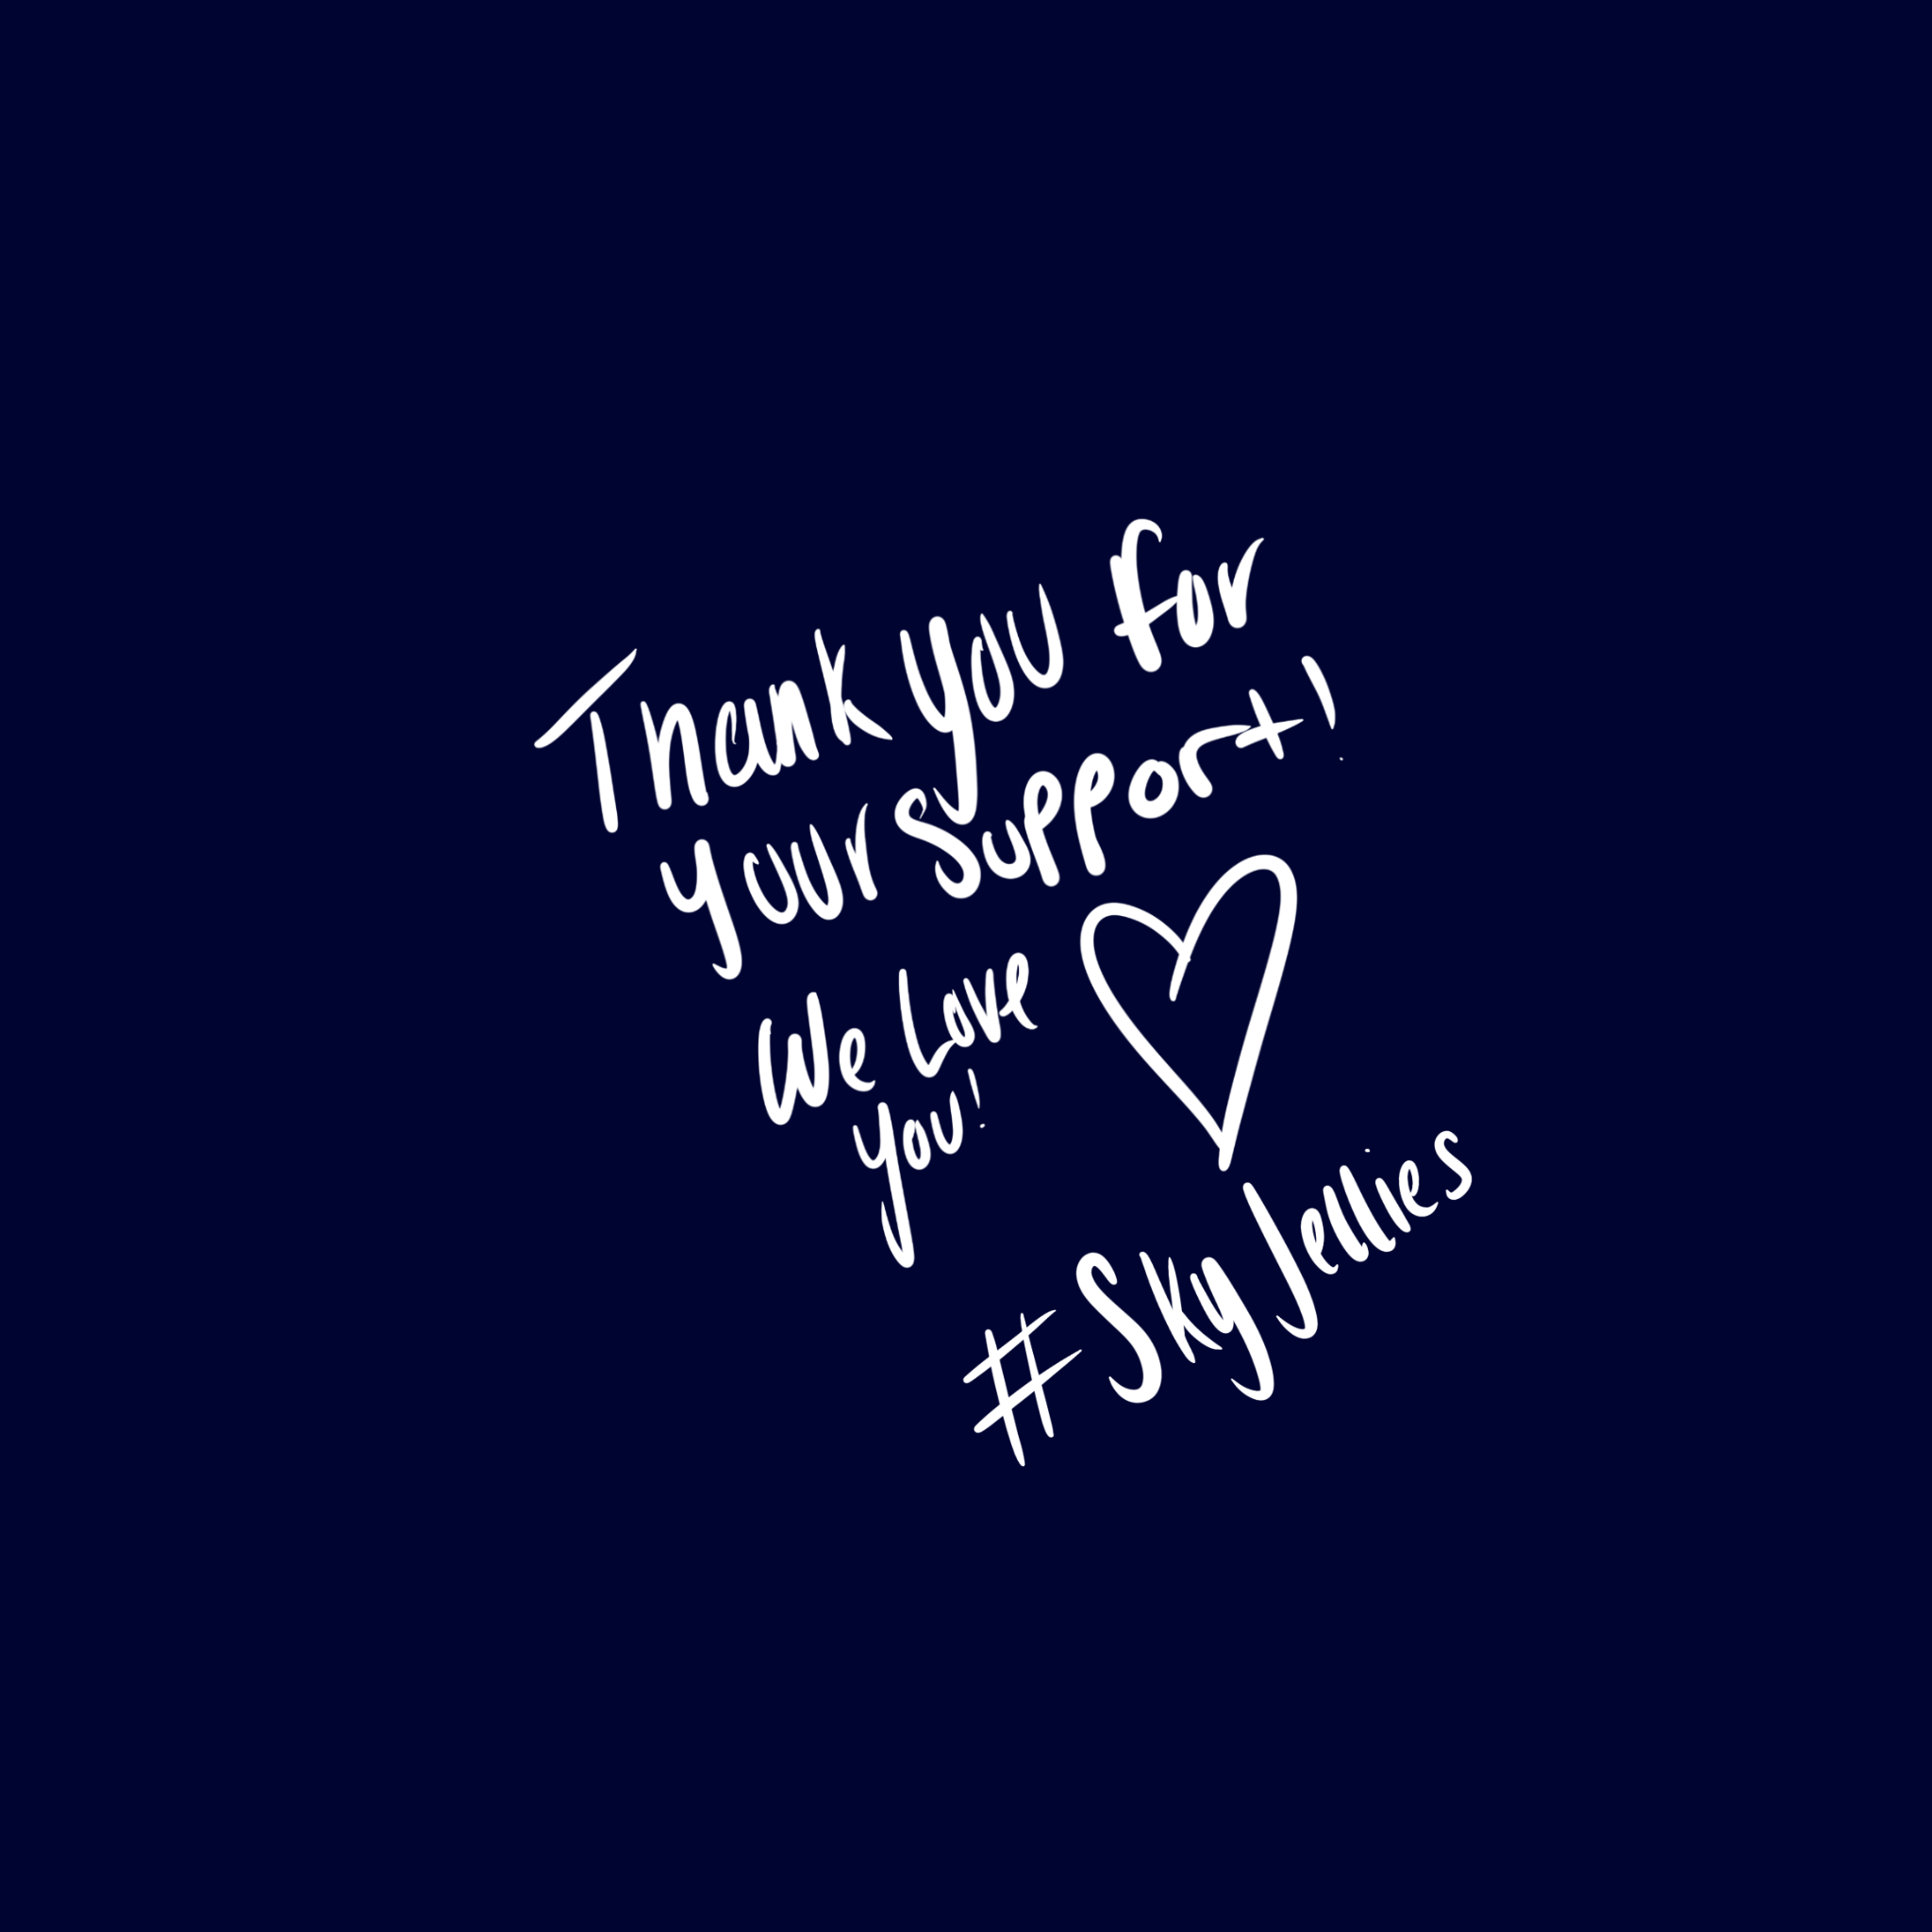 Thank you for
your support!
We Love
you!
#SkyJellies